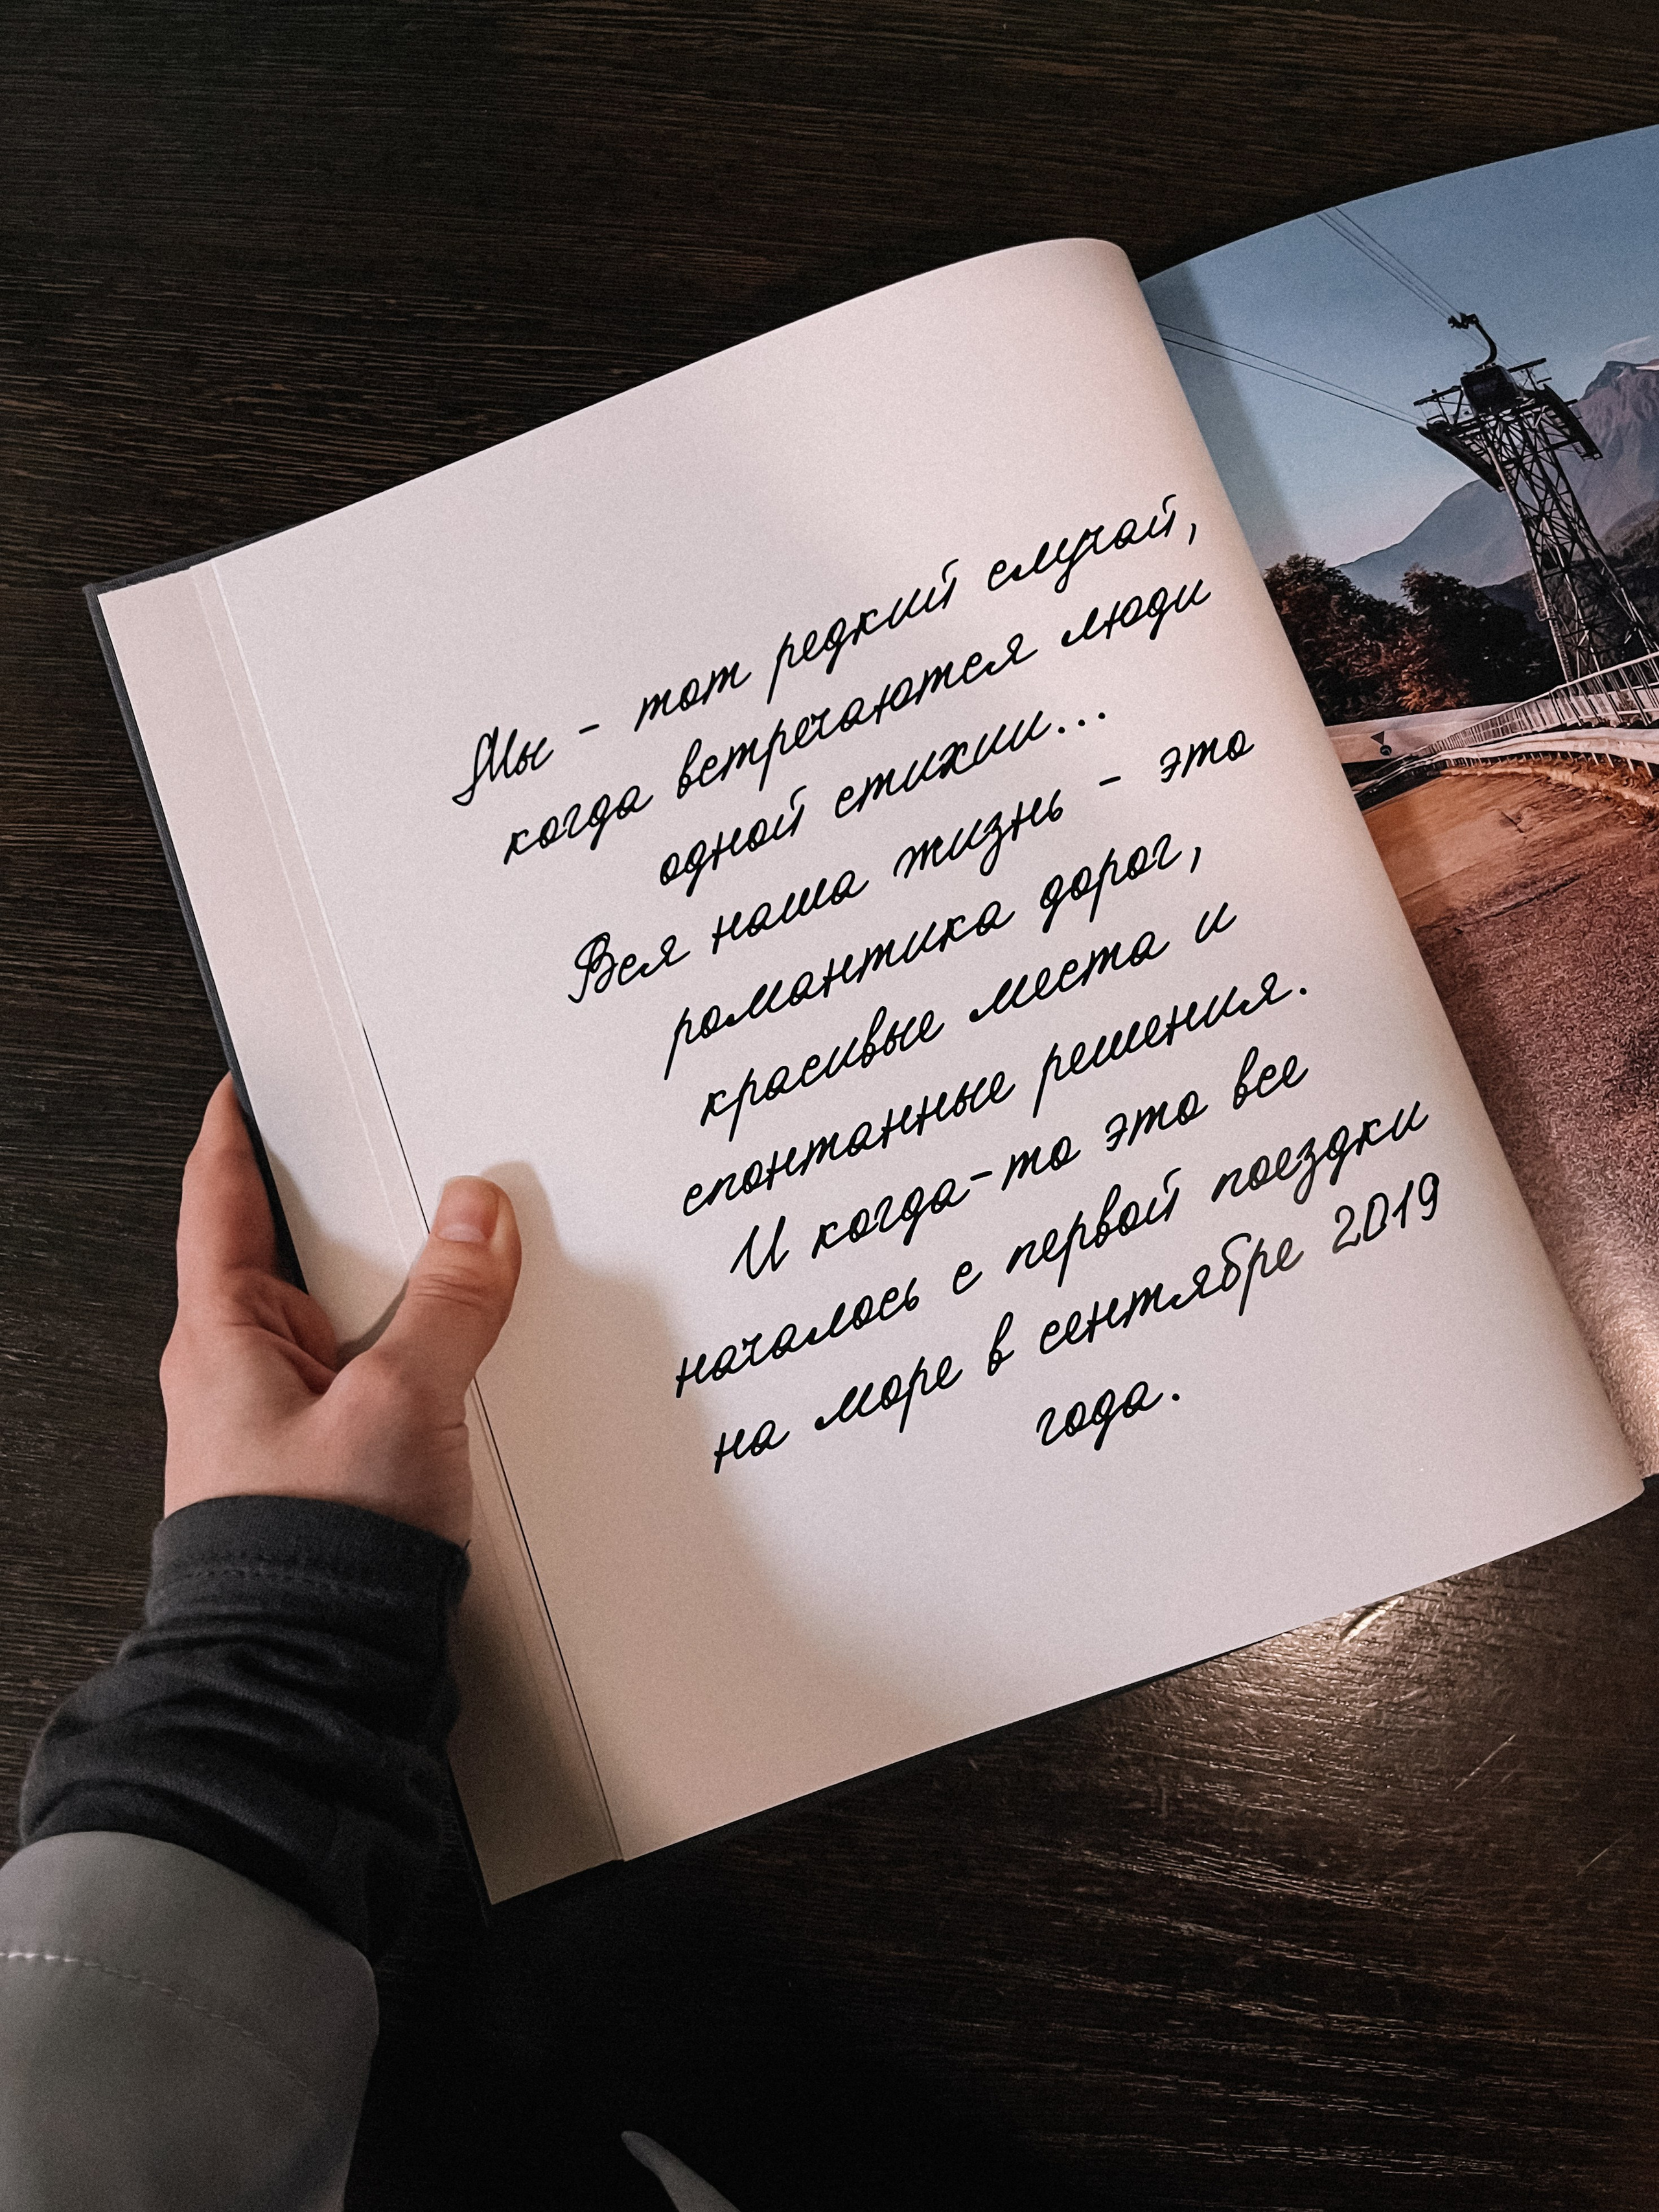 Мы - тот редкий случай,
когда встречаются люди
одной стихии...
Вся наша жизнь - это
романтика дорог,
красивые места и
спонтанные решения.
И когда-то это все
началось с первой поездки
на море в сентябре 2019
года.